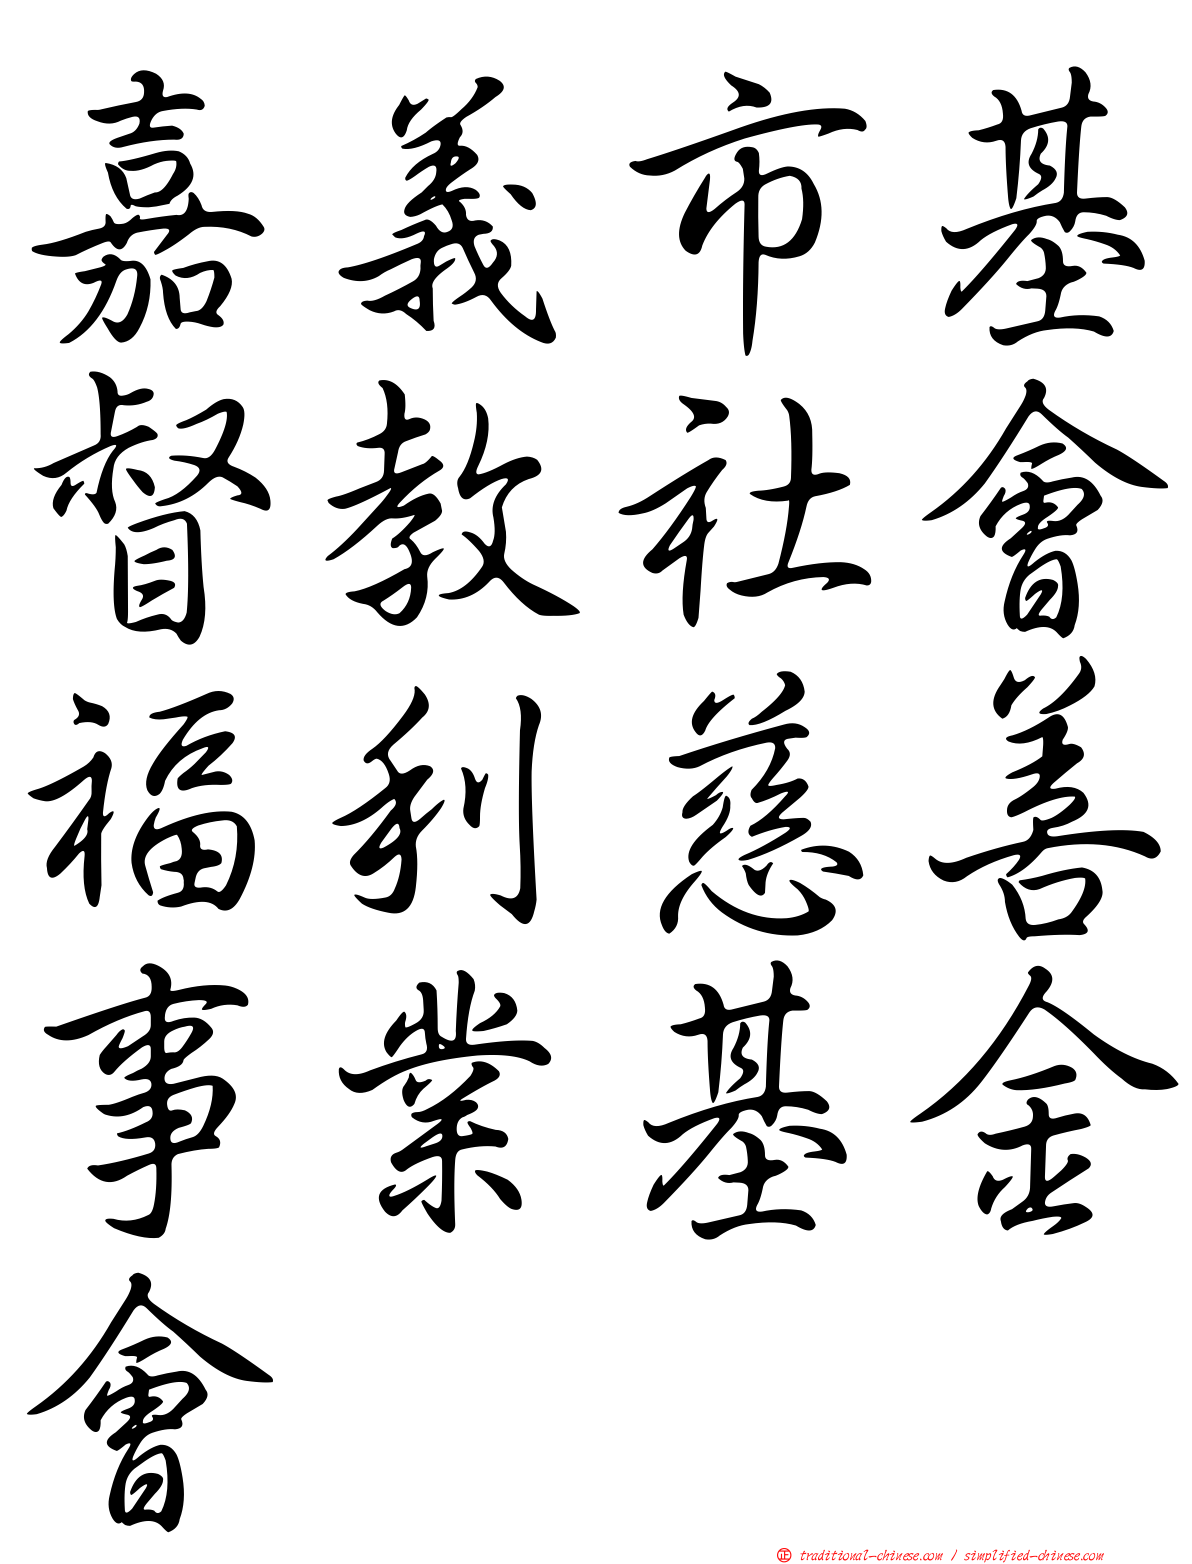 嘉義市基
督教社會
福利慈善
事業基金
會
㊣ traditional-chinese.com / simplified-chinese.com